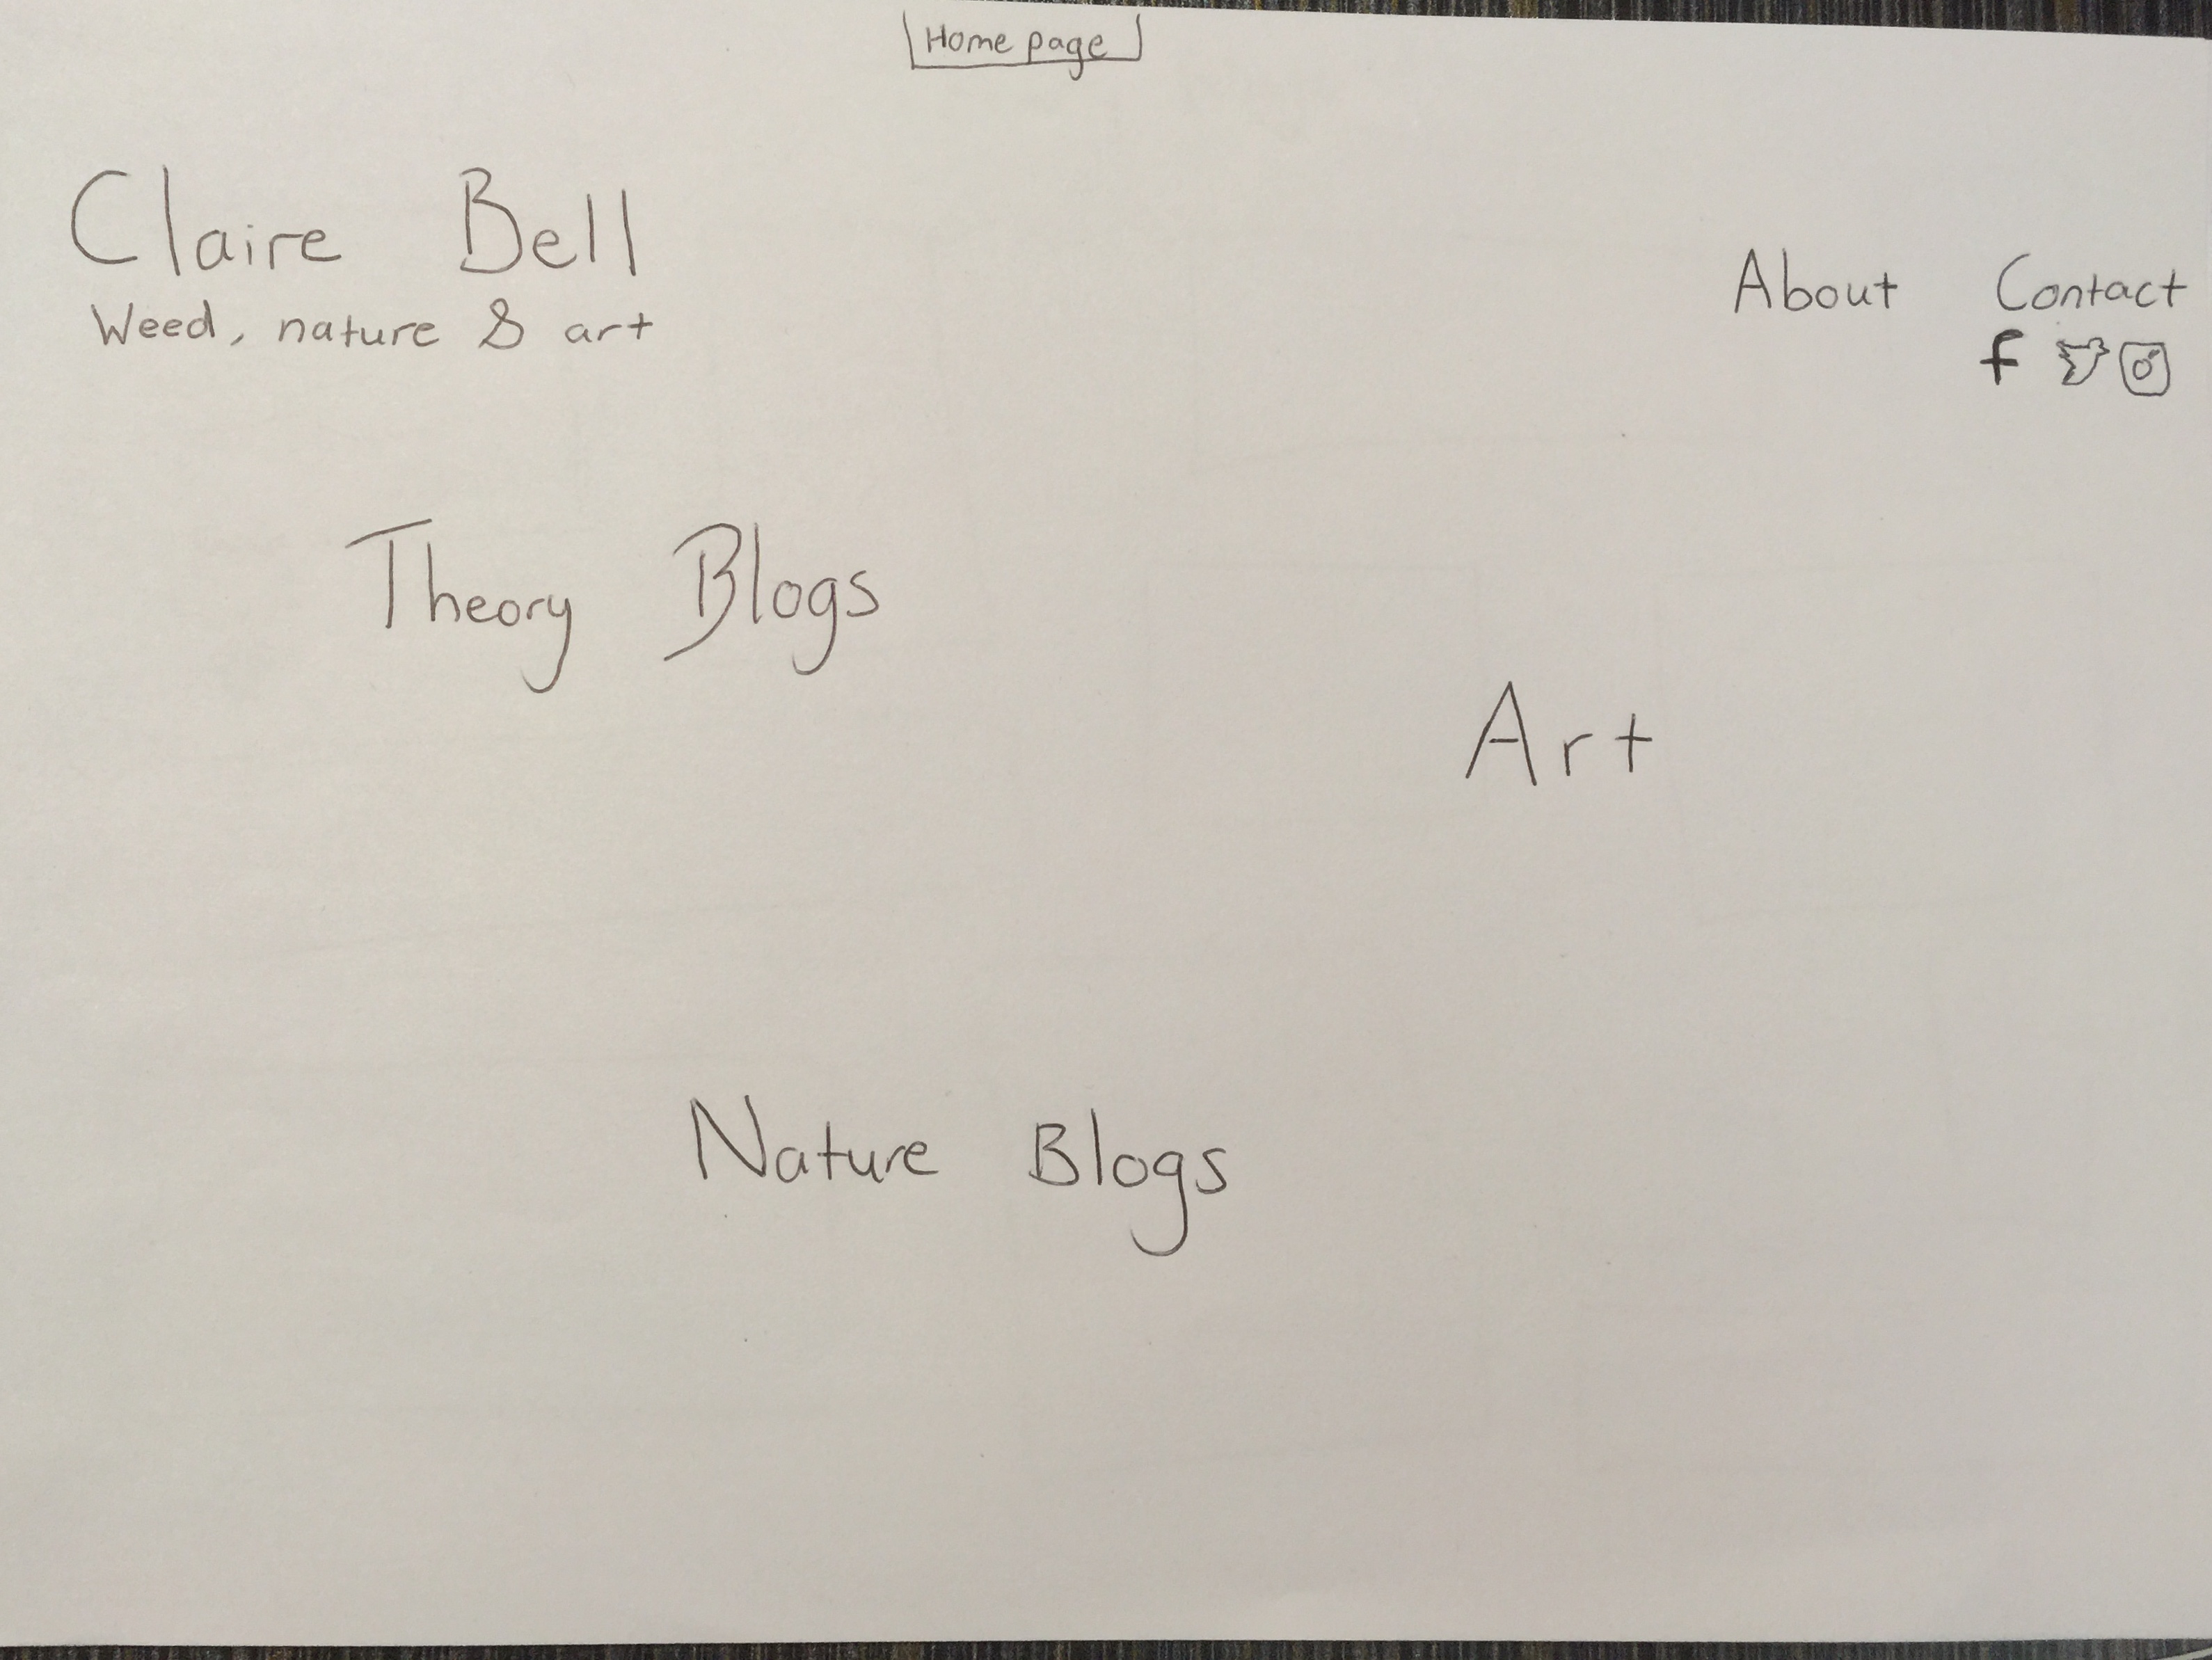 Home page
Claire Bell
Weed, nature & art
About Contact
f
Theory Blogs
Art
Nature Blogs